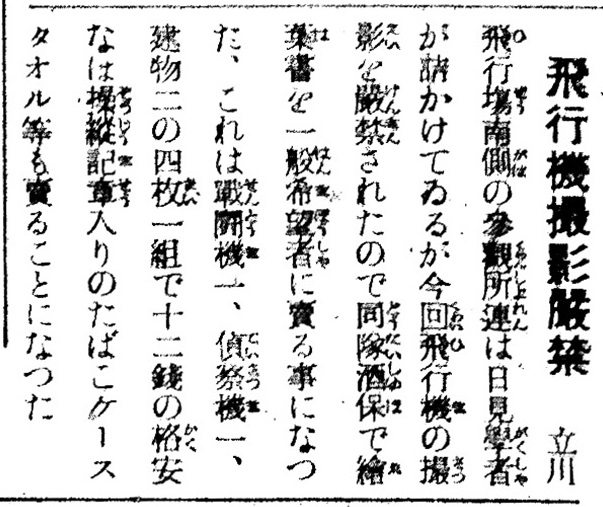 飛行機撮影嚴禁 立川
飛行場南側の參觀所連は日見學者
が詰かけてゐるが今回飛行機の撮
影を嚴禁されたので同隊酒保で繪
葉書を一般希望者に賣る事になつ
た、これは戰鬪機一、偵察機一、
建物二の四枚一組で十二錢の格安
なほ操縱記章入りのたばこケース
タオル等も賣ることになつた